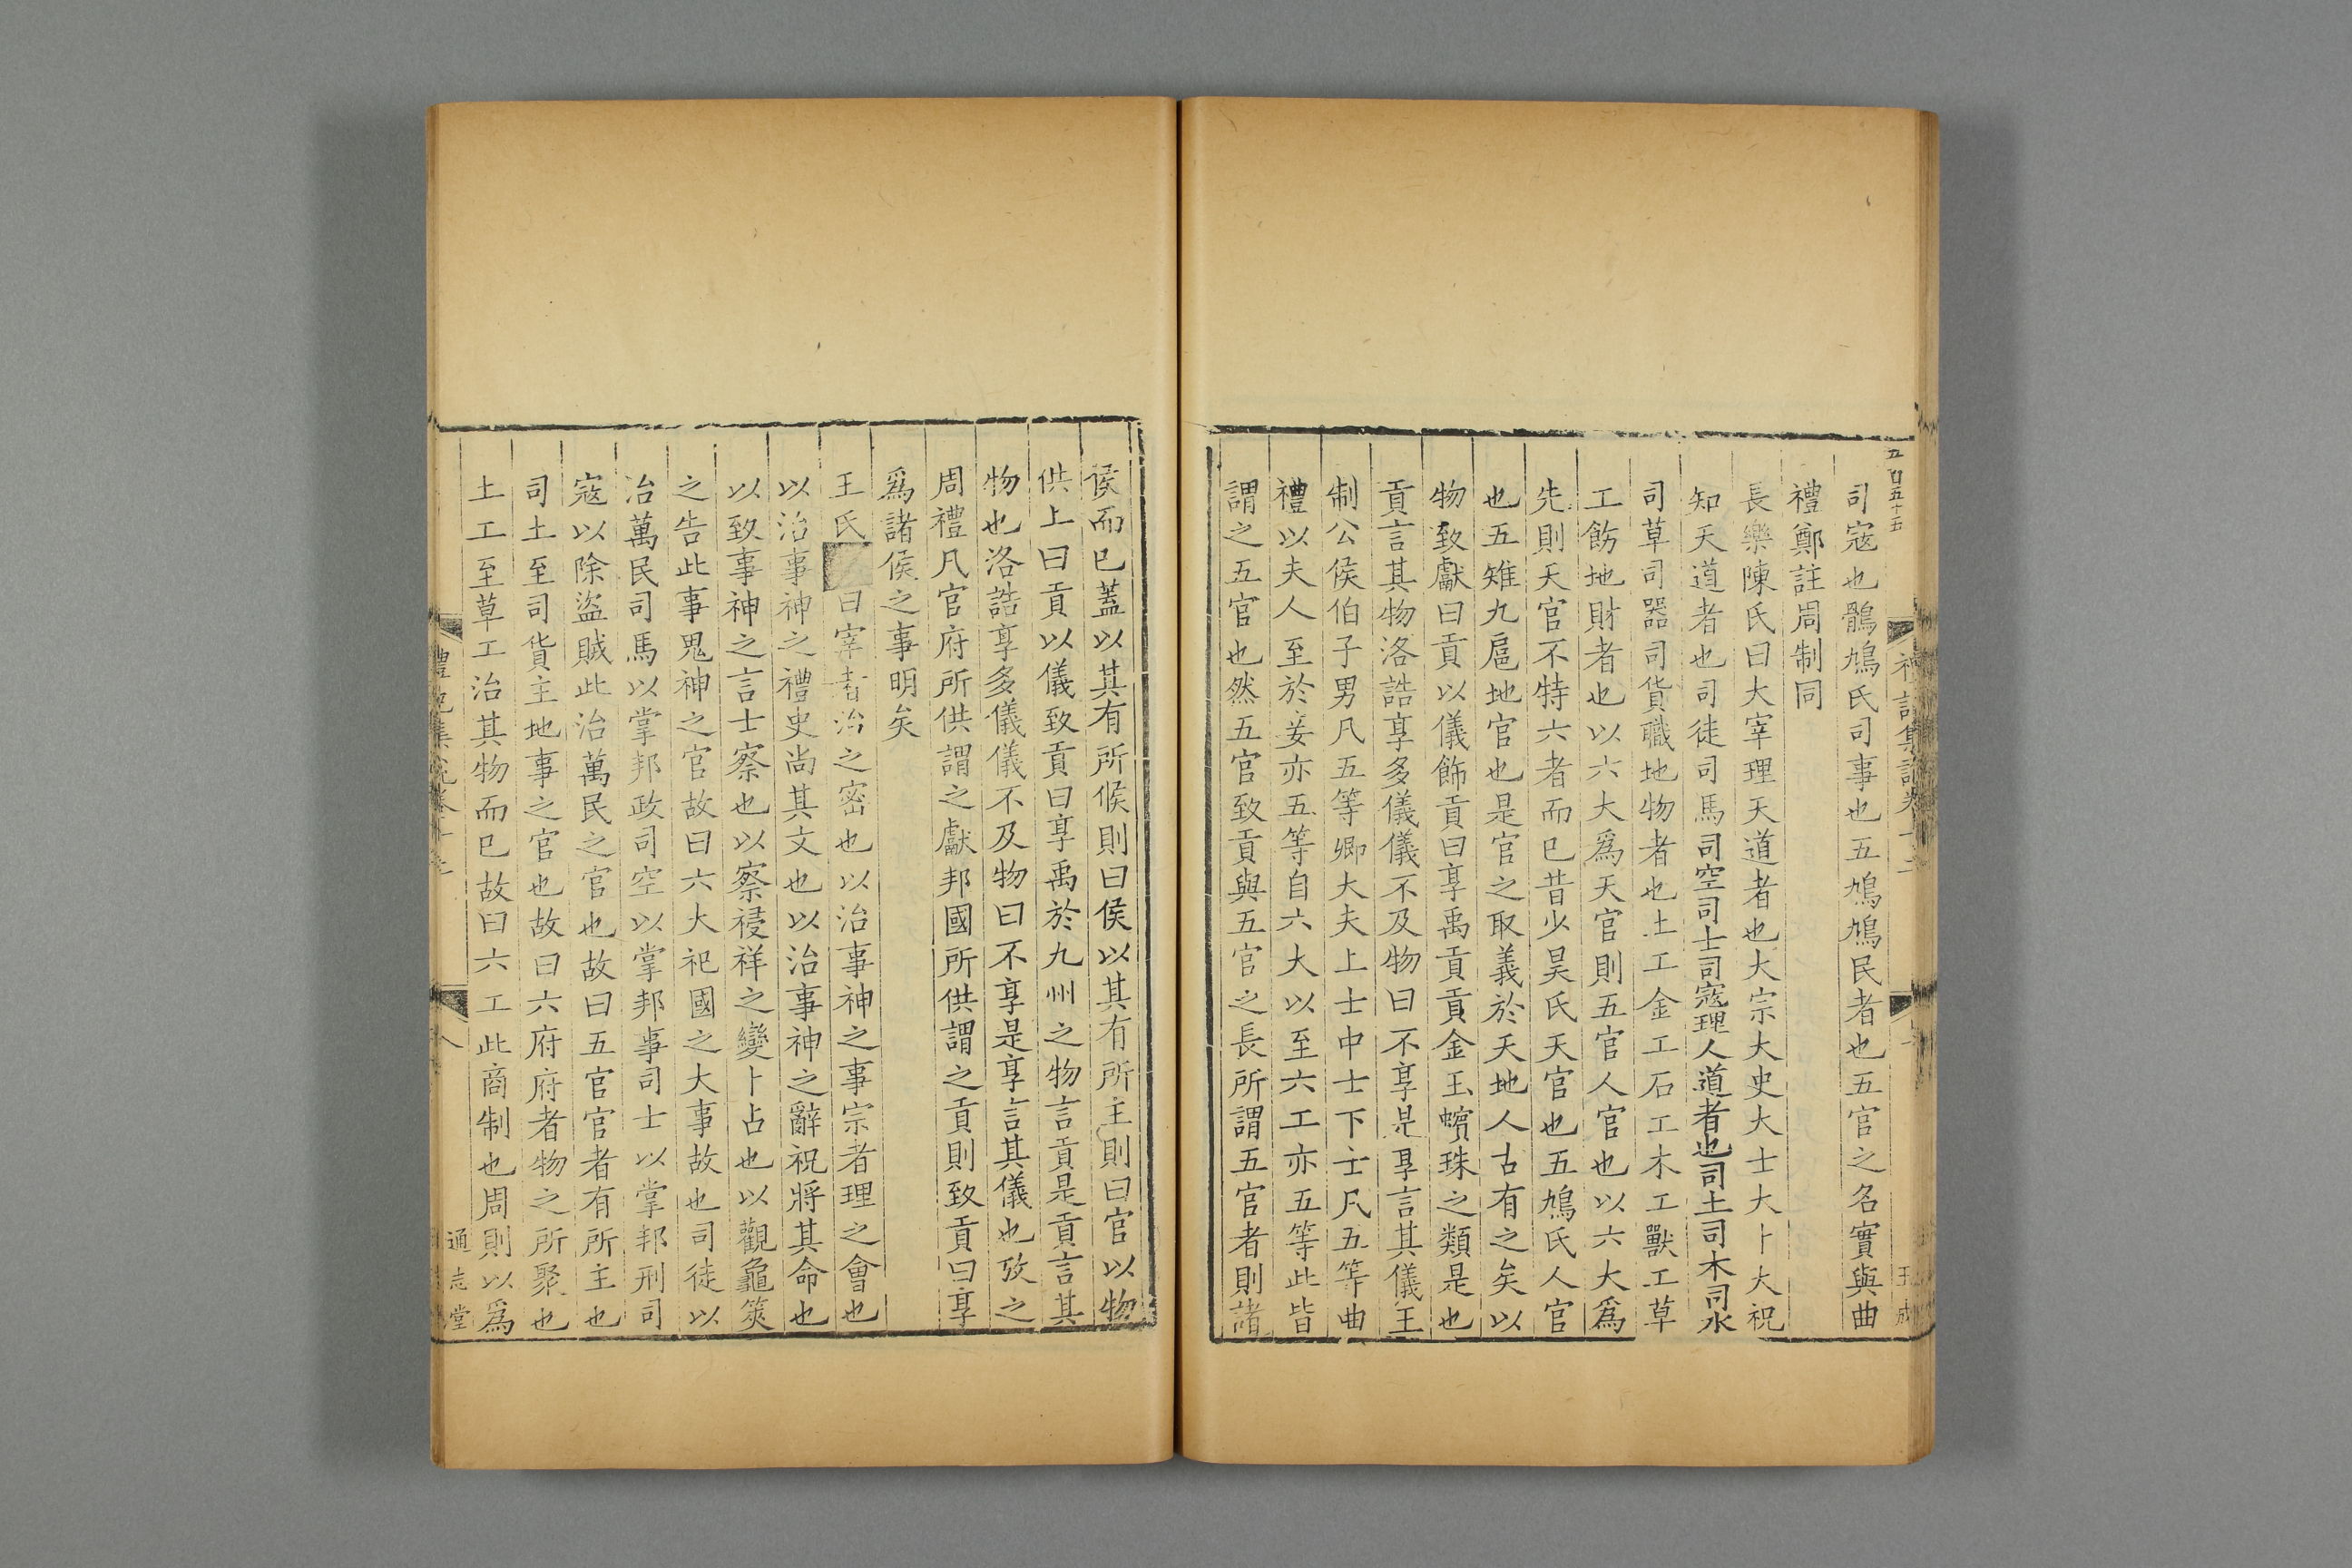 五百五十五
司寇也鶻鳩氏司事也五鳩鳩民者也五官之名實與曲
禮鄭註周制同
長樂陳氏曰大宰理天道者也大宗大史大士大卜大祝
知天道者也司徒司馬司空司士司寇理人道者也司土司木司水
司草司器司貨職地物者也土工金工石工木工獸工草
工飭地財者也以六大爲天官則五官人官也以六大爲
先則天官不特六者而已昔少昊氏天官也五鳩氏人官
也五雉九扈地官也是官之取義於天地人古有之矣以
物致獻曰貢以儀飾貢曰享禹貢貢金玉蠙珠之類是也
貢言其物洛誥享多儀儀不及物曰不享是享言其儀王
制公侯伯子男凡五等卿大夫上士中士下士凡五等曲
禮以夫人至於妾亦五等自六大以至六工亦五等此皆
謂之五官也然五官致貢與五官之長所謂五官者則諸
侯而已蓋以其有所候則曰侯以其有所主則曰官以物
供上曰貢以儀致貢曰享禹於九州之物言貢是貢言其
物也洛誥享多儀儀不及物曰不享是享言其儀也攷之
周禮凡官府所供謂之獻邦國所供謂之貢則致貢曰享
爲諸侯之事明矣
王氏曰宰者治之密也以治事神之事宗者理之會也
以治事神之禮史尚其文也以治事神之辭祝將其命也
以致事神之言士察也以察祲祥之變卜占也以觀龜筴
之告此事鬼神之官故曰六大祀國之大事故也司徒以
治萬民司馬以掌邦政司空以掌邦事司士以掌邦刑司
寇以除盜賊此治萬民之官也故曰五官官者有所主也
司土至司貨主地事之官也故曰六府府者物之所聚也
土工至草工治其物而已故曰六工此商制也周則以爲
八
通志堂